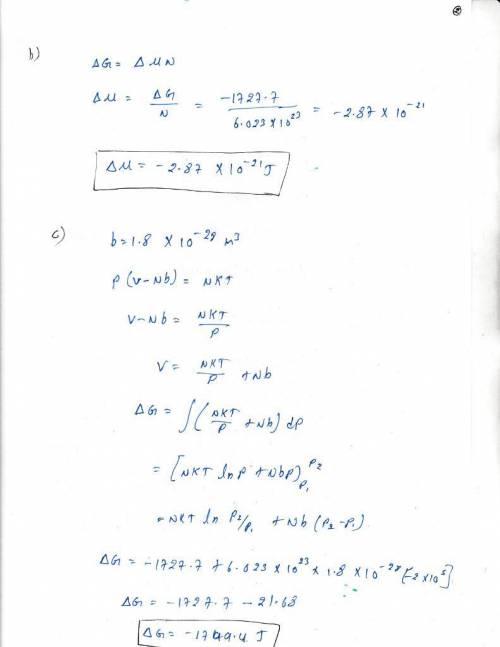 b)
ΔG = Δμ N
Δμ = ΔG/N = -1727.7 / 6.023 × 10^23 = -2.87 × 10^-21
Δμ = -2.87 × 10^-21 J
c)
b = 1.8 × 10^-28 m^3
P (V-Nb) = NKT
V-Nb = NKT/P
V = NKT/P + Nb
ΔG = ∫ (NKT/P + Nb) dP
= [NKT ln P + NbP]_P1^P2
= NKT ln P2/P1 + Nb (P2-P1)
ΔG = -1727.7 + 6.023 × 10^23 × 1.8 × 10^-28 [-2 × 10^5]
ΔG = -1727.7 - 21.68
ΔG = -1749.4 J